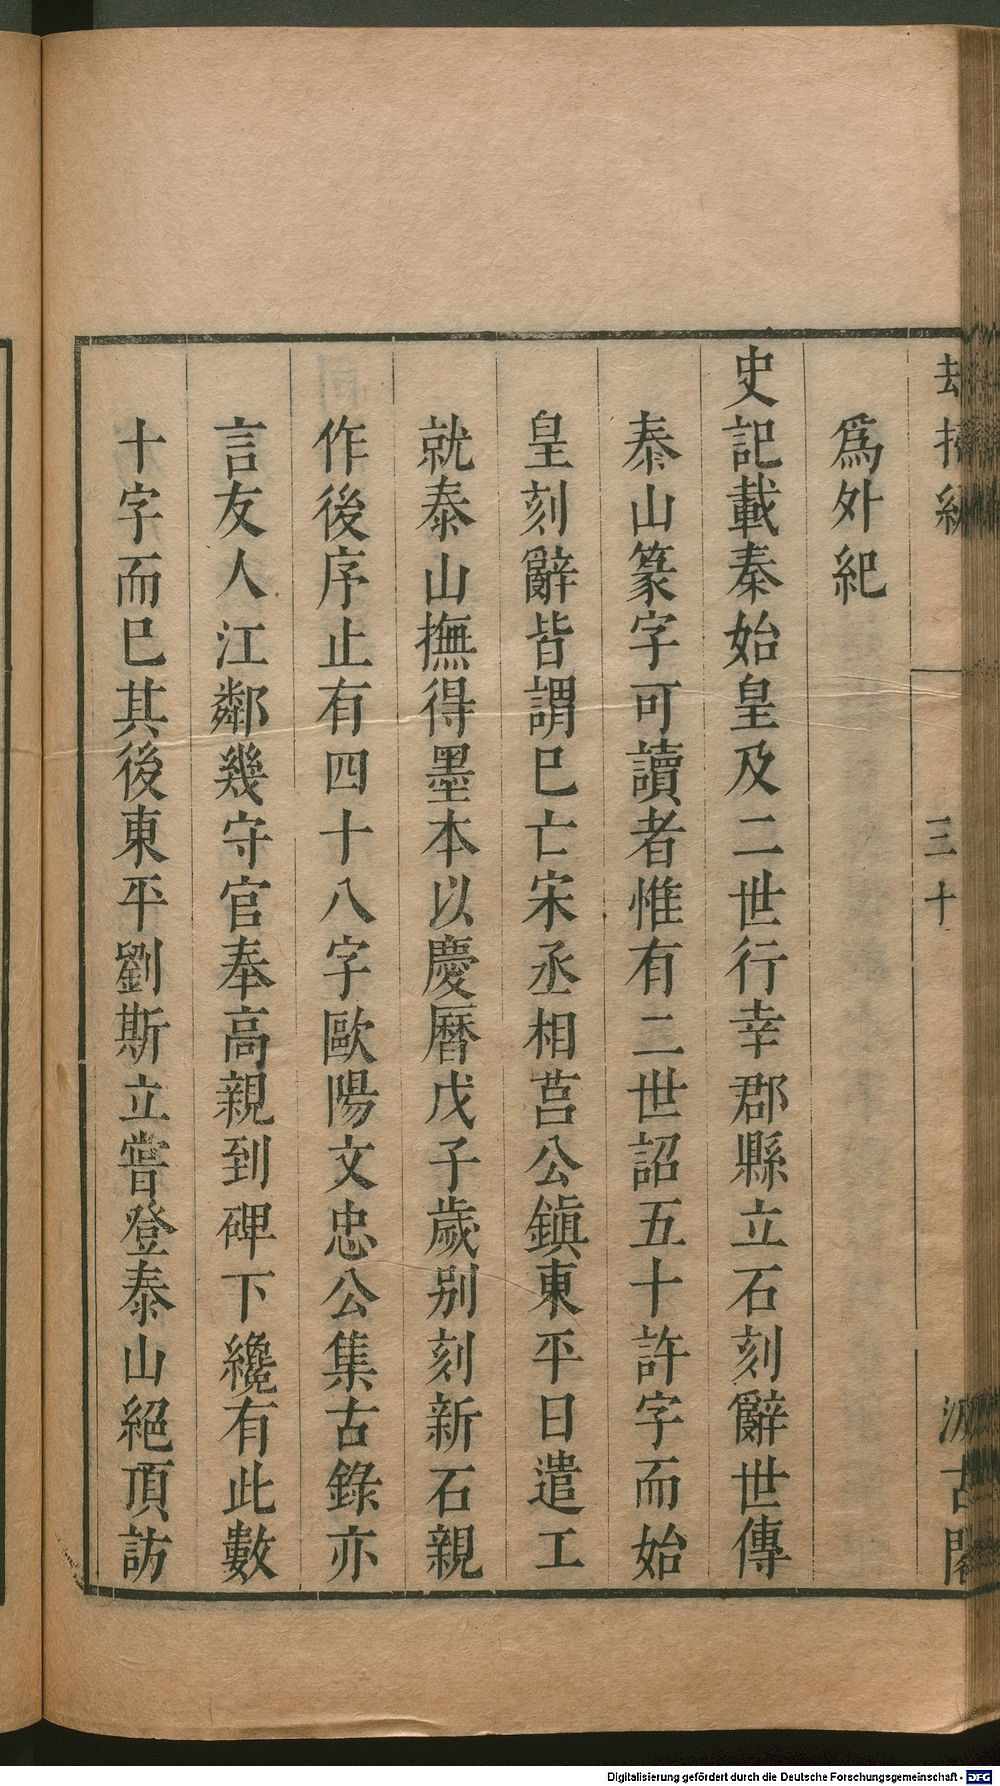 三十
爲外紀
史記載秦始皇及二世行幸郡縣立石刻辭世傳
泰山篆字可讀者惟有二世詔五十許字而始
皇刻辭皆謂巳亡宋丞相莒公鎮東平日遣工
就泰山撫得墨本以慶曆戊子歲别刻新石親
作後序止有四十八字歐陽文忠公集古錄亦
言友人江鄰幾守官奉高親到碑下纔有此數
十字而巳其後東平劉斯立嘗登泰山絕頂訪
Digitalisierung gefördert durch die Deutsche Forschungsgemeinschaft - DFG